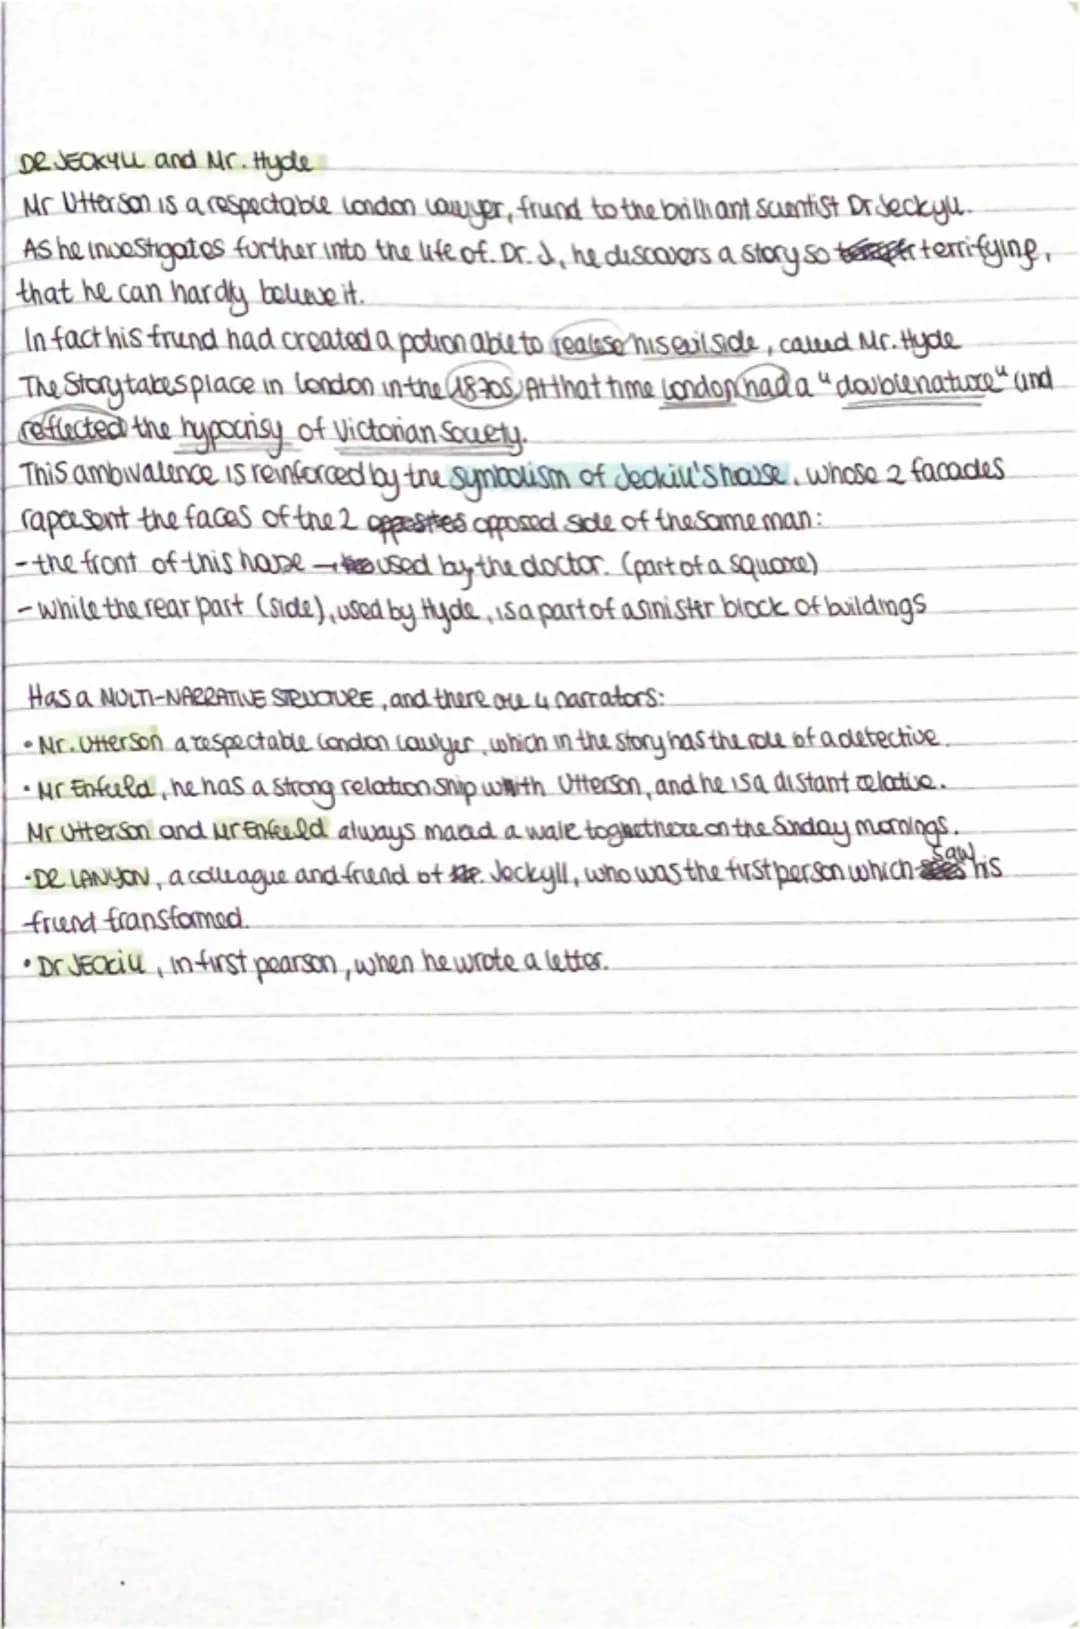 DR JECKYLL and Mr. Hyde
Mr Utterson is a respectable London lawyer, friend to the brilliant scientist Dr Jeckyll.
As he investigates further into the life of. Dr. J, he discovers a story so terrifying,
that he can hardly believe it.
In fact his friend had created a potion able to realese his evil side, called Mr. Hyde
The Story takes place in London in the 1870s. At that time London had a "double nature" and
reflected the hypocrisy of Victorian Society.
This ambivalence is reinforced by the symbolism of Jeckill's house, whose 2 facades
rapresent the faces of the 2 opposed side of the same man:
- the front of this house → used by the doctor. (part of a square)
- while the rear part (side), used by Hyde, is a part of a sinister block of buildings
Has a MULTI-NARRATIVE STRUCTURE, and there are 4 narrators:
• Mr. Utterson a respectable London lawyer, which in the story has the role of a detective.
• Mr Enfield, he has a strong relation ship with Utterson, and he is a distant relative.
Mr Utterson and Mr Enfield always a walk on the Sunday mornings.
• DR LANYON, a colleague and friend of Jeckyll, who was the first person which saw his
friend transformed.
• Dr JECKill, in first pearson, when he wrote a letter.